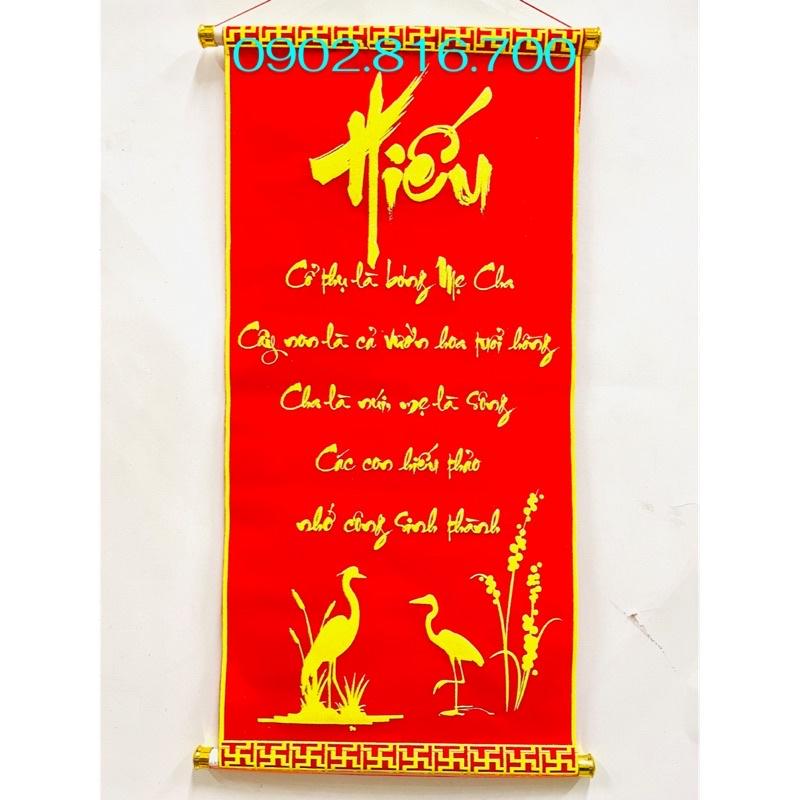 0902.816.700
Hiếu
Cổ thụ là bóng Mẹ Cha
Cây non là cả vườn hoa tươi hồng
Cha là núi, mẹ là Sông
Các con hiếu thảo
nhớ công Sinh thành